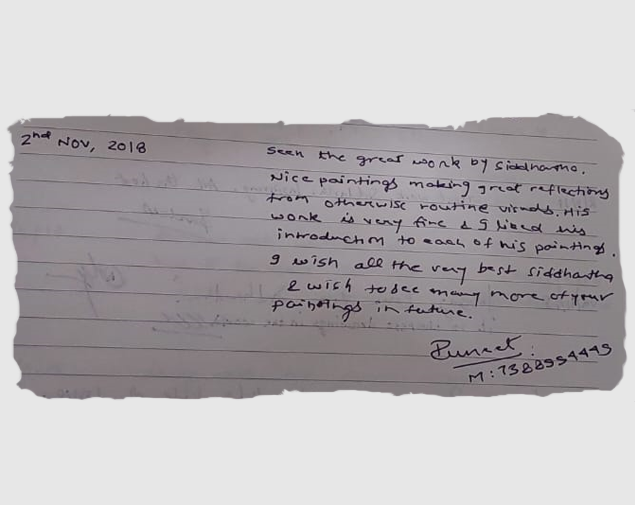 2nd Nov, 2018
Seen the great work by Siddhartha.
Nice paintings making great reflections
from otherwise routine visuals. His
work is very fine & I liked his
introduction to each of his paintings.
I wish all the very best Siddhartha
& wish to see many more of your
paintings in future.
Puneet
M: 7388994449